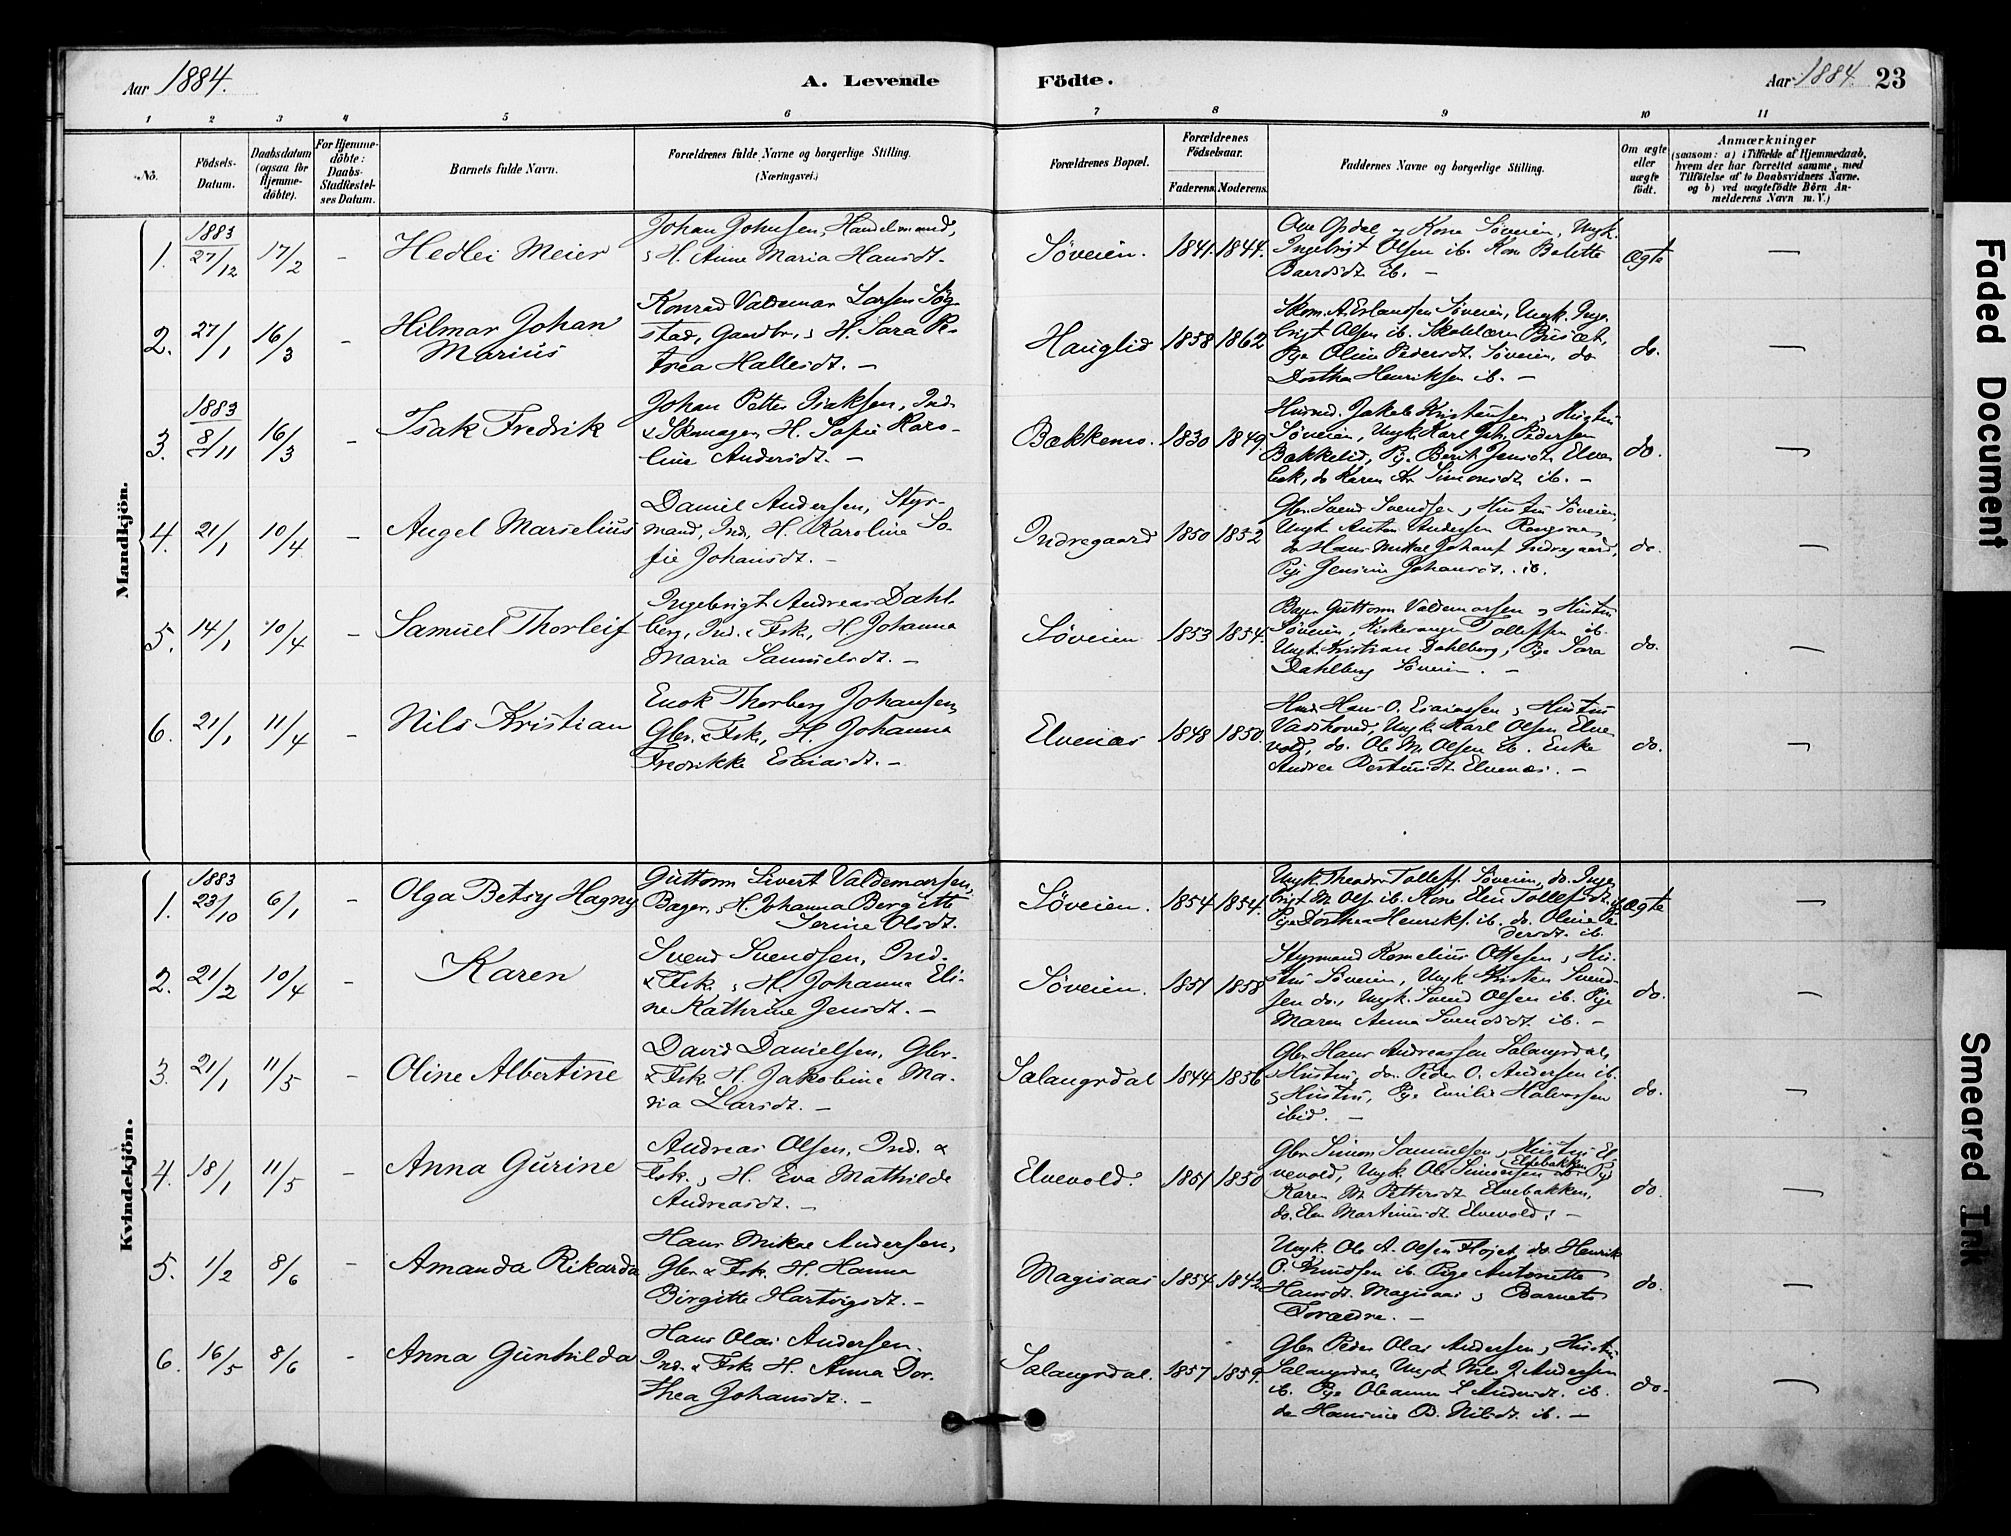 Aar 1884.
A. Levende
Födte.
Aar 1884. 23
1 2 3 4 5 6 7 8 9 10 11
No.
Födsels-Datum.
Daabsdatum (ogsaa for Hjemme-döbte).
For Hjemme-döbte: Daabs-Stadfæstel-ses Datum.
Barnets fulde Navn.
Forældrenes fulde Navne og borgerlige Stilling.
(Næringsvei.)
Forældrenes Bopæl.
Forældrenes Födselsaar.
Faderens. Moderens.
Faddernes Navne og borgerlige Stilling.
Om ægte eller uægte födt.
Anmærkninger
(saasom: a) i Tilfælde af Hjemmedaab, hvem der har forrettet samme, med Tilföielse af to Daabsvidners Navne, og b) ved uægtefödte Börn Anmelderens Navn m. V.)
Mandkjön.
1. 1883 27/12 17/2 - Hedlei Meier
Johan Johnsen, Handelsmand,
& H. Anne Maria Hansdt.
Søveien. 1841. 1844.
Ole Opdal & Kone Søveien, Ungk.
Ingebrigt Olsen ib. Kone Bolette
ib. -
Ægte -
2. 27/1 16/3 - Hilmar Johan
Marius
Konrad Valdemar Larsen Søg-
stad, Gaardbr., & H. Sara Pe-
trea Hallesdt. -
Hauglid 1858 1862
Skom. A. Erlandsen Søveien, Ungk. Inge-
brigt Olsen ib.
Pige Oline Pedersdt. Søveien, do
Dorthea Henriksen ib. -
do. -
3. 1883 8/11 16/3 - Isak Fredrik
Johan Petter Isaksen, Ind.
& Skomager, H. Sofie Karo-
line Andersdt. -
Bækkemo. 1830 1849.
Husmd. Jakob Kristansen & Hustru
Søveien, Ungk. Karl Joh. Pedersen
Bakkelid, Pg. Berit Jensdt. Elve-
bak, do Karen Simonsdt. ib. -
do. -
4. 21/1 10/4 - Angel Marselius
Daniel Andersen, Styr-
mand, Ind., H. Karoline So-
fie Johansdt. -
Indregaard 1850 1852
Gbr. Svend Svendsen & Hustru Søveien,
Ungk Anton Andersen
do Hans Mikal Johans. Indregaard,
Pige Jensine Johansdt. ib.
do. -
5. 14/1 10/4 - Samuel Thorleif
Ingebrigt Andreas Dahl-
berg, Ind. & Fsk., H. Johanna
Maria Samuelsdt. -
Søveien 1853 1854.
Bager Guttorm Valdemarsen & Hustru
Søveien, Tollefsen ib.
Ungk. Kristian Dahlberg, Pige Sara
Dahlberg Søveien. -
do. -
6. 21/1 11/4 - Nils Kristian
Enok Thorberg Johansen,
Gbr. & Fsk., H. Johanna
Fredrikke Esaiasdt. -
Elvenæs 1848 1850.
Hans O. Esaiassen & Hustru
Ungk. Karl Olsen Elve-
vold, do. Ole M. Olsen ib. Enke
Andrea Elvenæs. -
do. -
Kvindekjön.
1. 1883 23/10 6/1 - Olga Betsy Hagny
Guttorm Sivert Valdemarsen,
Bager, & H. Johanna Bergitte
Serine Olsdt.
Søveien. 1854 1854.
Ungk. Theodor Tollefs. Søveien, do. Inge-
brigt M. Ols. ib. Kone Elen Tollefsdt.
Pige Dorthea Henriks. ib. do. Oline Pe-
dersdt. ib.
Ægte -
2. 21/2 10/4 - Karen
Svend Svendsen, Ind.
& Fsk. & H. Johanna Eli-
ne Kathrine Jensdt. -
Søveien. 1851 1858
Styrmand Kornelius Ottesen & Hu-
stru Søveien, Ungk Kristen Svend-
sen do., Ungk. Svend Olsen ib. Pige
Maren Anna Svendsdt. ib. -
do. -
3. 21/1 11/5 - Oline Albertine
David Danielsen, Gbr.
& Fsk. H. Jakobine Ma-
ria Larsdt. -
Salangsdal 1844 1856
Gbr. Hans Andreassen Salangsdal,
& Hustru, do. Peder O. Andersen ib.
& Hustru, Pige Emilie Halvorsen
ibid. -
do. -
4. 18/1 11/5 - Anna Gurine
Andreas Olsen, Ind. &
Fsk. & H. Eva Mathilde
Andreasdt. -
Elvevold. 1851 1850
Gbr. Simon Samuelsen & Hustru El-
vevold, Ungk Ole Simonsen Elvebakken Pige
Karen M. Pettersdt. Elvebakken,
do. Elen Martinusdt. Elvevold. -
do. -
5. 1/2 8/6 - Amanda Rikarda
Hans Mikal Andersen,
Gbr. & Fsk. H. Hanna
Birgitte Hartvigsdt. -
Magisaas 1854 1842
Ungk. Ole A. Olsen Fløjet, do. Henrik
P. Knudsen ib. Pige Antonette
Hansdt. Magisaas & Barnets
Forældre. -
do. -
6. 16/5 8/6 - Anna Gunhilda
Hans Olai Andersen.
Ind. & Fsk. H. Anna Dor-
thea Johansdt. -
Salangsdal. 1857 1859.
Gbr. Peder Olai Andersen & Hustru
Salangsdal, Ungk Nils J. Andersen
ib. Pige Oleanna ib.
do Hansine B. Nilsdt. ib. -
do. -
Faded Document
Smeared Ink